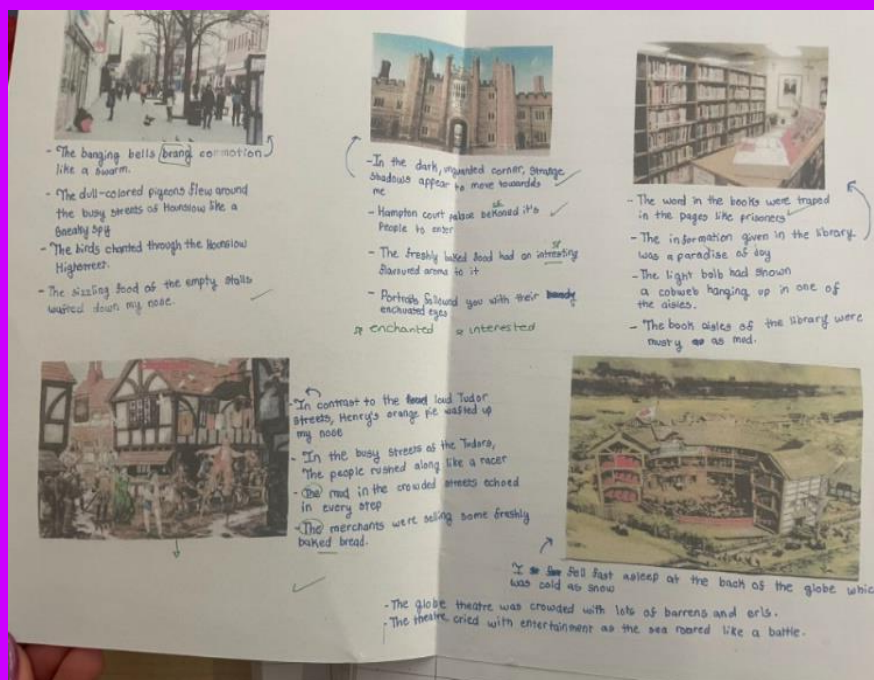 - The banging bells brang commotion
like a swarm.
- The dull-colored pigeons flew around
the busy streets of Hounslow like a
sneaky spy
- The birds chanted through the Hounslow
Highstreet.
- The sizzling food of the empty stalls
wafted down my nose.
- In the dark, unguarded corner, strange
shadows appear to move towardds
me
- Hampton court palace bekoned it's
People to enter
- The freshly baked food had an intresting
flavoured aroma to it
sp
- Portraits followd you with their
enchuated eyes
enchanted interested
- The word in the books were traped
in the pages like prisoners
- The information given in the library
was a paradise of day
- The light bolb had shown
a cobweb hanging up in one of
the aisles.
- The book aisles of the library were
musty as mod.
- In contrast to the loud Tudor
streets, Henry's orange pie wafted up
my nose
- In the busy streets of the Tudors,
The people rushed along like a racer
- The mud in the crowded streets echoed
in every step
- The merchants were selling some freshly
baked bread.
I fell fast asleep at the back of the globe which
was cold as snow
- The globe theatre was crowded with lots of barrens and erls.
- The theatre cried with entertainment as the sea roared like a battle.